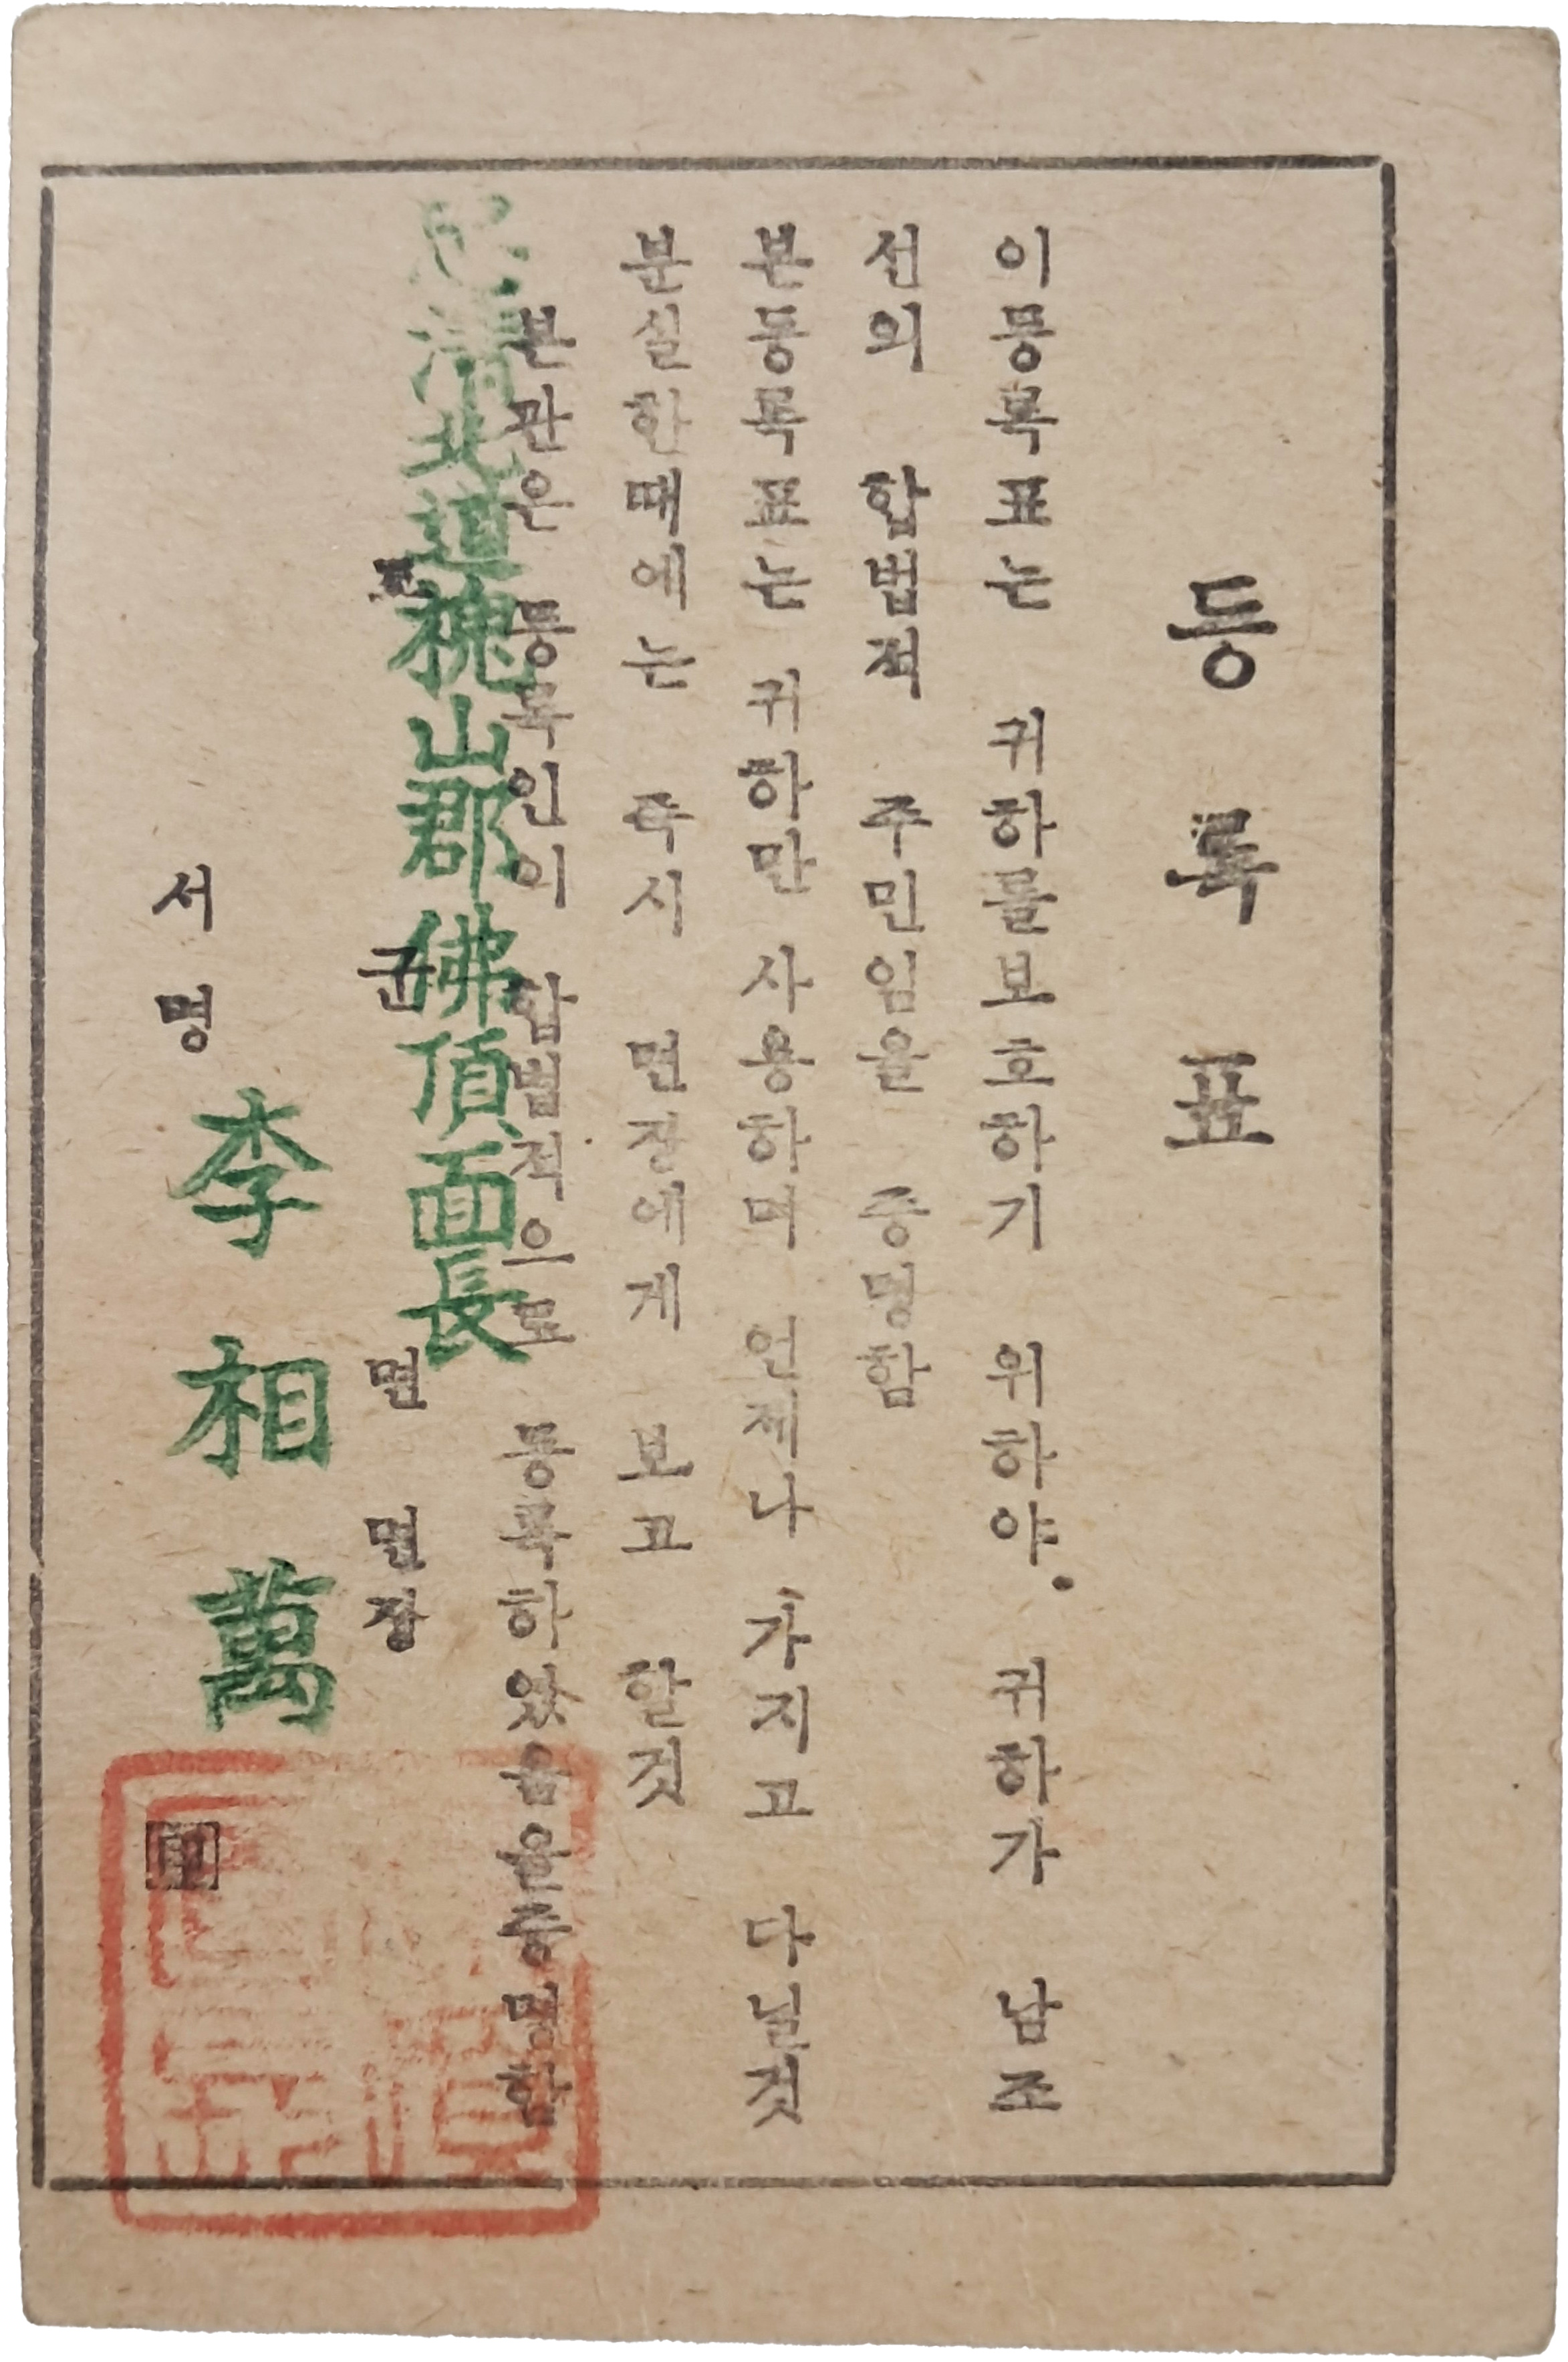 등록표
이등록표는 귀하를보호하기 위하야. 귀하가 남조
선의 합법적 주민임을 증명함
본등록표는 귀하만 사용하며 언제나 가지고 다닐것
분실한때에는 즉시 면장에게 보고 할것
본관은 등록인이 합법적으로 등록하였음을증명함
忠淸北道槐山郡佛頂面長
군 면 면장
서명 李相萬